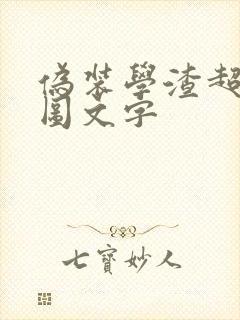 偽裝學渣超
圖文字
七寶妙人